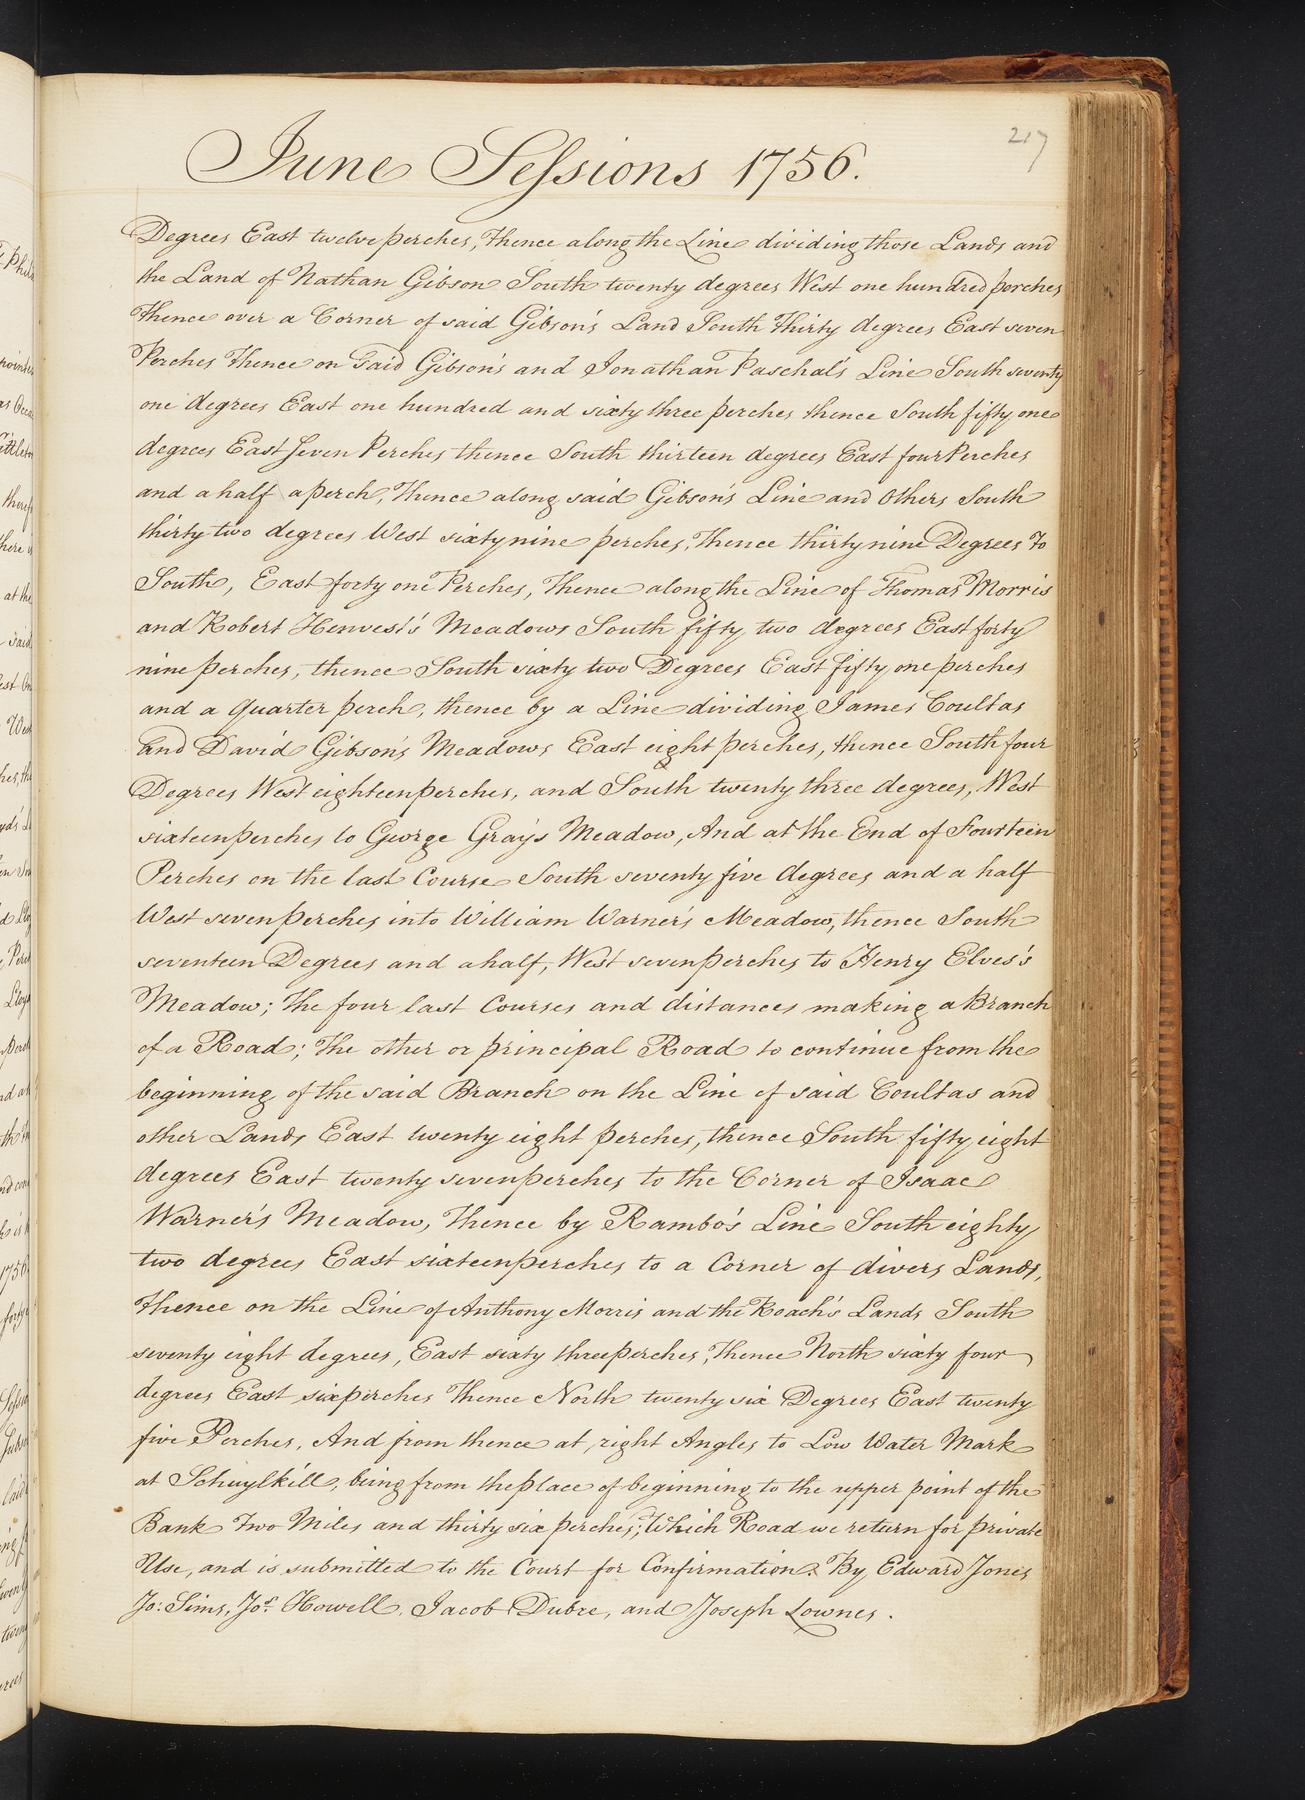 217
June Sessions 1756.
Degrees East twelve perches, Thence along the Line dividing those Lands and
the Land of Nathan Gibson South twenty degrees West one hundred perches
Thence over a Corner of said Gibson's Land South Thirty degrees East seven
Perches Thence on said Gibson's and Jonathan Paschal's Line South seventy
one degrees East one hundred and sixty three perches thence South fifty one
degrees East Seven Perches thence South thirteen degrees East four Perches
and a half a perch, Thence along said Gibson's Line and Others South
thirty two degrees West sixty nine perches, Thence thirty nine Degrees To
South, East forty one Perches, Thence along the Line of Thomas Morris
and Robert Henvest's Meadows South fifty two degrees East forty
nine perches, thence South sixty two Degrees East fifty one perches
and a quarter perch, thence by a Line dividing James Coultas
and David Gibson's Meadows East eight perches, thence South four
Degrees West eighteen perches, and South twenty three degrees, West
sixteen perches to George Gray's Meadow, And at the End of Fourteen
Perches on the last Course South seventy five degrees and a half
West seven perches into William Warner's Meadow, thence South
seventeen Degrees and a half, West seven perches to Henry Elves's
Meadow; The four last Courses and distances making a Branch
of a Road; The other or principal Road to continue from the
beginning of the said Branch on the Line of said Coultas and
other Lands East twenty eight perches, thence South fifty eight
degrees East twenty seven perches to the Corner of Isaac
Warner's Meadow, Thence by Rambo's Line South eighty
two degrees East sixteen perches to a Corner of divers Lands,
Thence on the Line of Anthony Morris and the Roach's Lands South
seventy eight degrees, East sixty three perches, Thence North sixty four
degrees East six perches Thence North twenty six Degrees East twenty
five Perches, And from thence at right Angles to Low Water Mark
at Schuylkill, being from the place of beginning to the upper point of the
Bank Two Miles and thirty six perches; Which Road we return for private
Use, and is submitted to the Court for Confirmation. By Edward Jones
Jo: Sims, Jos. Howell, Jacob Dubre, and Joseph Lownes.